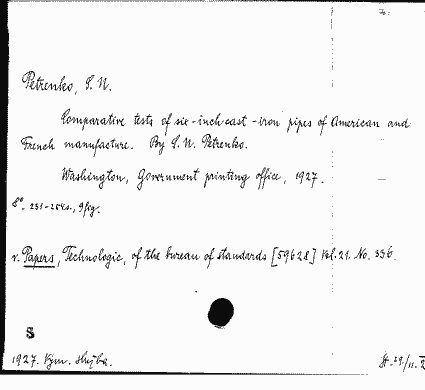 Petrenko, S. N.
Comparative tests of six-inch cast-iron pipes of American and
French manufacture. By S. N. Petrenko.
Washington, Government printing office, 1927.
8°. 231-254 s., 9 fig.
v. Papers, Technologic, of the bureau of standards [59628] Vol. 21. No. 336.
S
1927. Kjøn. Hujba.